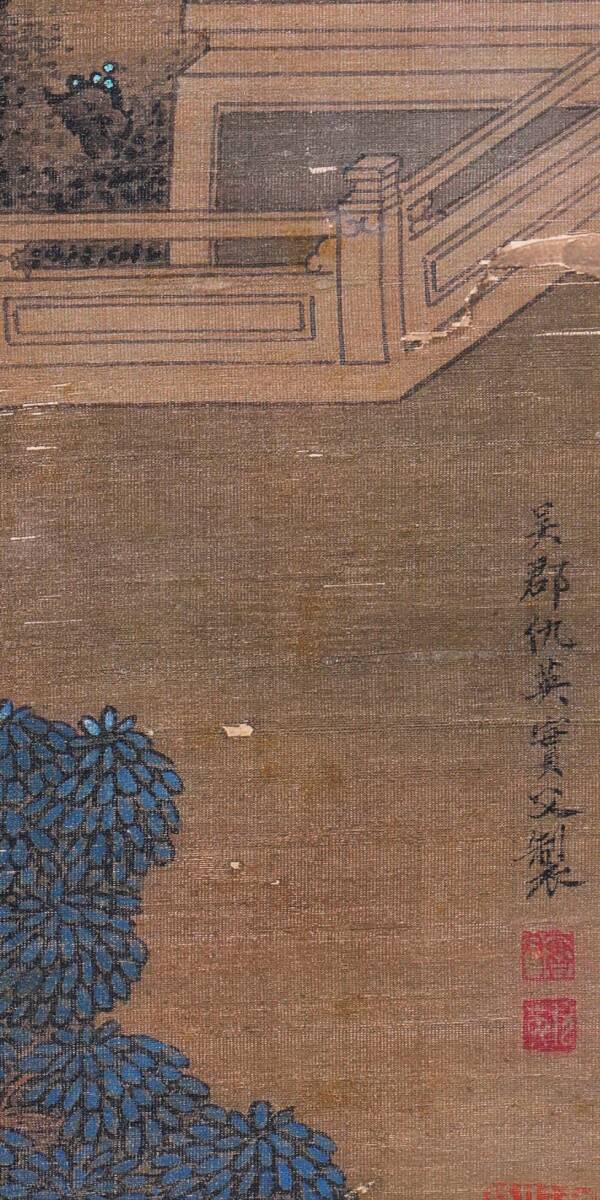 吴郡仇英實父製